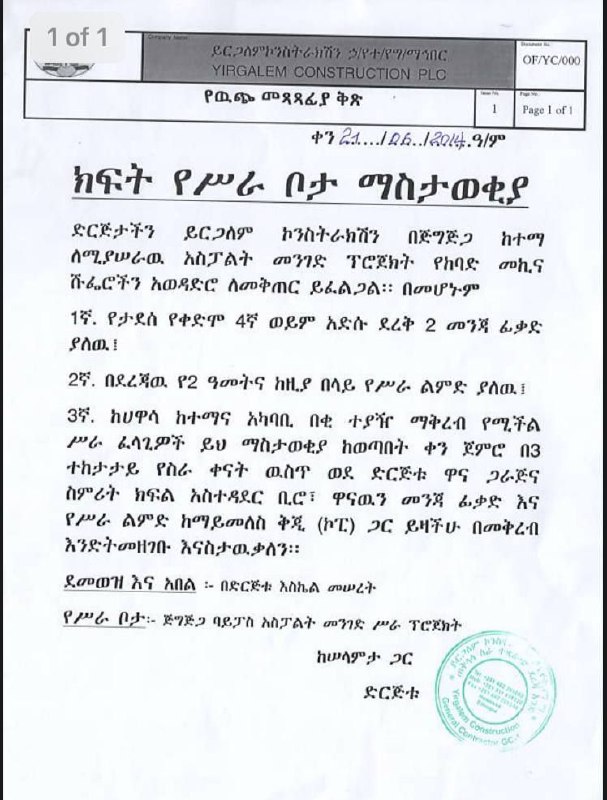 1 of 1
Company Name:
ይርጋለምኮንስትራክሽን ኃ/የተ/የግ/ማኅበር
YIRGALEM CONSTRUCTION PLC
Document No.
OF/YC/000
የዉጭ መጻጻፊያ ቅጽ
Issue No.
1
Page No.
Page 1 of 1
ቀን 21..../06../2014.ዓ/ም
ክፍት የሥራ ቦታ ማስታወቂያ
ድርጅታችን ይርጋለም ኮንስትራክሽን በጅግጅጋ ከተማ
ለሚያሠራዉ አስፓልት መንገድ ፕሮጀክት የከባድ መኪና
ሹፌሮችን አወዳድሮ ለመቅጠር ይፈልጋል፡፡ በመሆኑም
1ኛ. የታደሰ የቀድሞ 4ኛ ወይም አድሱ ደረቅ 2 መንጃ ፊቃድ
ያለዉ፤
2ኛ. በደረጃዉ የ2 ዓመትና ከዚያ በላይ የሥራ ልምድ ያለዉ፤
3ኛ. ከሀዋሳ ከተማና አካባቢ በቂ ተያዥ ማቅረብ የሚችል
ሥራ ፈላጊዎች ይህ ማስታወቂያ ከወጣበት ቀን ጀምሮ በ3
ተከታታይ የስራ ቀናት ዉስጥ ወደ ድርጅቱ ዋና ጋራጅና
ስምሪት ክፍል አስተዳደር ቢሮ፣ ዋናዉን መንጃ ፊቃድ እና
የሥራ ልምድ ከማይመለስ ቅጂ (ኮፒ) ጋር ይዛችሁ በመቅረብ
እንድትመዘገቡ እናስታዉቃለን፡፡
ደመወዝ እና አበል ፡- በድርጅቱ እስኬል መሠረት
የሥራ ቦታ፡- ጅግጅጋ ባይፓስ አስፓልት መንገድ ሥራ ፕሮጀክት
ከሠላምታ ጋር
ድርጅቱ
Yirgalem Construction
General Contractor GC-1